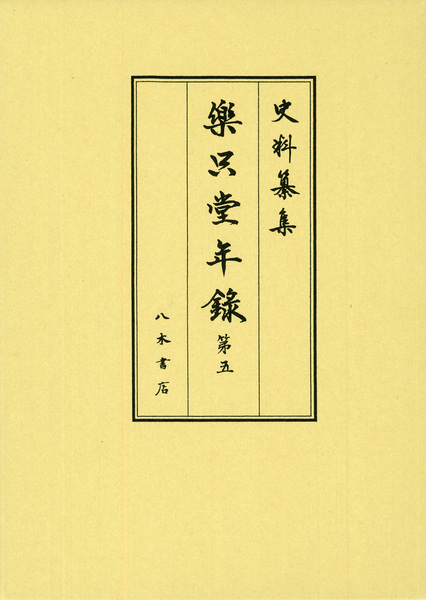 史料纂集
樂只堂年錄 第五
八木書店